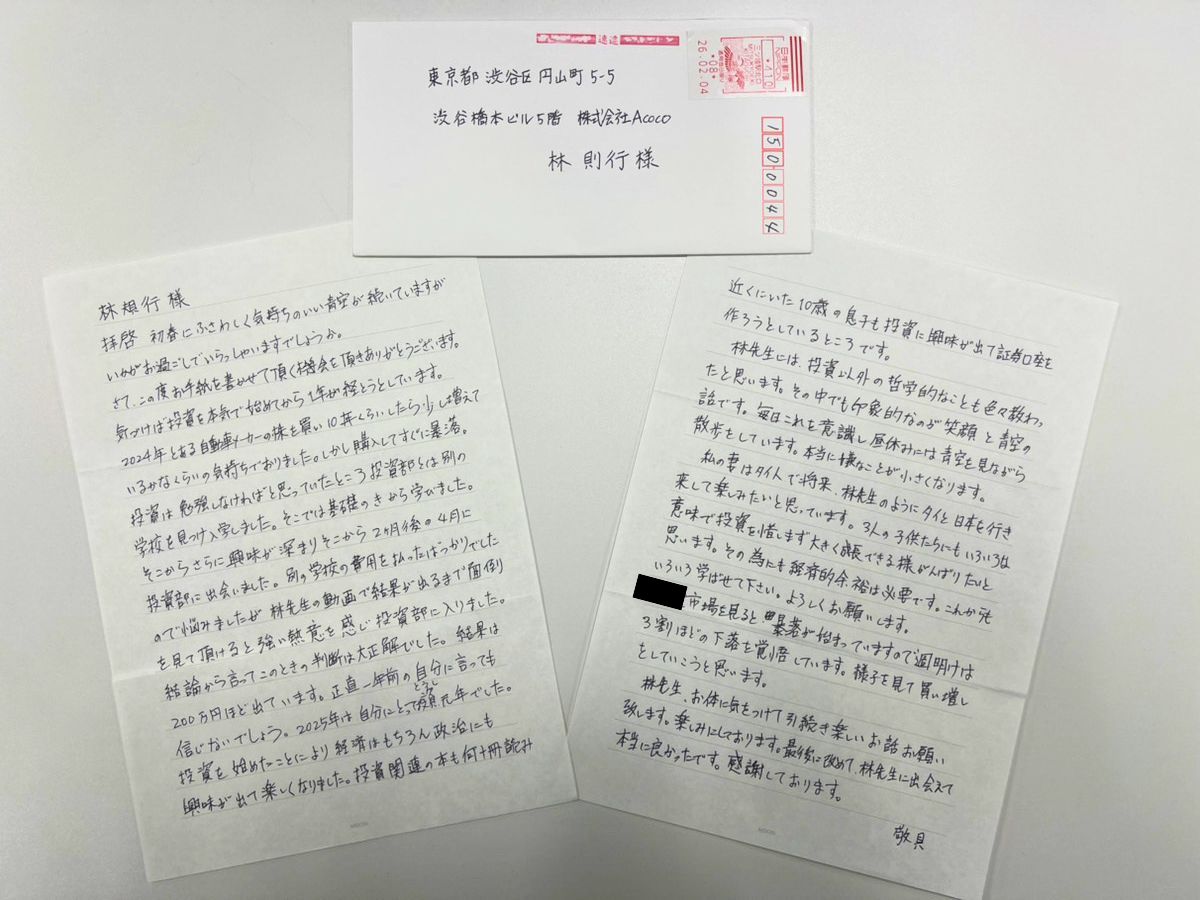 速達
日本郵便
NIPPON
410
26.02.04
東京都渋谷区円山町5-5
渋谷橋本ビル5階 株式会社Acoco
林 則行様
1500044
林規行様
拝啓 初春にふさわしく気持ちのいい青空が続いていますが
いかがお過ごしでいらっしゃいますでしょうか。
さて、この度お手紙を書かせて頂く機会を頂きありがとうございます。
気づけば投資を本気で始めてから1年が経とうとしています。
2024年とある自動車メーカーの株を買い10年くらいしたら少しは増えて
いるかなくらいの気持ちでおりました。しかし購入してすぐに暴落。
投資は勉強しなければと思っていたところ投資部とは別の
学校を見つけ入学しました。そこでは基礎のきから学びました。
そこからさらに興味が深まりそこから2ヶ月後の4月に
投資部に出会いました。別の学校の費用を払ったばっかりでした
ので悩みましたが林先生の動画で結果が出るまで面倒
を見て頂けると強い熱意を感じ投資部に入りました。
結論から言ってこのときの判断は大正解でした。結果は
200万円ほど出ています。正直一年前の自分に言っても
信じないでしょう。2025年は自分にとって資元年でした。
投資を始めたことにより経済はもちろん政治にも
興味が出て楽しくなりました。投資関連の本も何十冊読み
近くにいた10歳の息子も投資に興味が出て証券口座を
作ろうとしているところです。
林先生には、投資以外の哲学的なことも色々教わっ
たと思います。その中でも印象的なのが笑顔と青空の
話です。毎日これを意識し昼休みには青空を見ながら
散歩をしています。本当に嫌なことが小さくなります。
私の妻はタイ人で将来、林先生のようにタイと日本を行き
来して楽しみたいと思っています。3人の子供たちにもいろいろな
意味で投資を惜しまず大きく成長できる様がんばりたいと
思います。その為にも経済的余裕は必要です。これからも
いろいろ学ばせて下さい。よろしくお願いします。
市場を見ると暴落が始まっていますので週明けは
3割ほどの下落を覚悟しています。様子を見て買い増し
をしていこうと思います。
林先生、お体に気をつけて引続き楽しいお話お願い
致します。楽しみにしております。最後に改めて、林先生に出会えて
本当に良かったです。感謝しております。
敬具